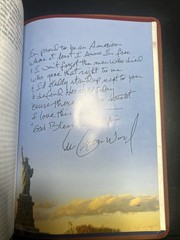 I'm proud to be an American
where at least I know I'm free
& I won't forget the men who died
who gave that right to me
& I'd gladly stand up next to you
& defend Her still today
'cause there
I love this
"God Bless